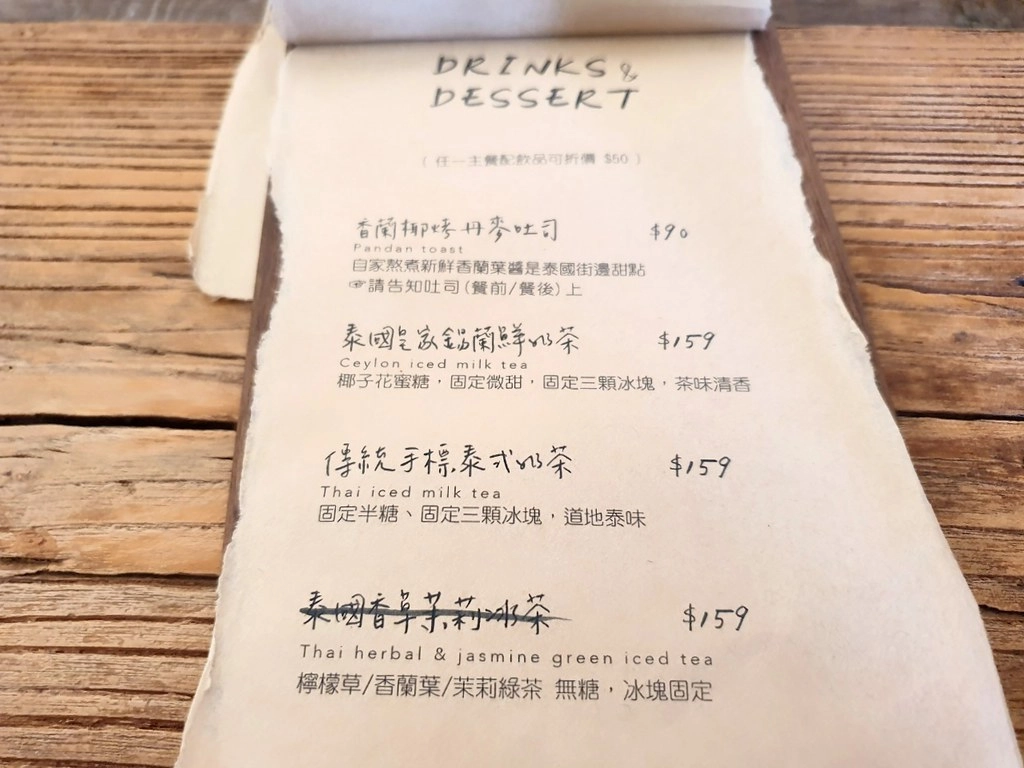 DRINKS &
DESSERT
( 任一主餐配飲品可折價 $50 )
香蘭椰烤丹麥吐司 $90
Pandan toast
自家熬煮新鮮香蘭葉醬是泰國街邊甜點
☞請告知吐司(餐前/餐後)上
泰國皇家錫蘭鮮奶茶 $159
Ceylon iced milk tea
椰子花蜜糖,固定微甜,固定三顆冰塊,茶味清香
傳統手標泰式奶茶 $159
Thai iced milk tea
固定半糖、固定三顆冰塊,道地泰味
泰國香草茉莉冰茶 $159
Thai herbal & jasmine green iced tea
檸檬草/香蘭葉/茉莉綠茶 無糖,冰塊固定